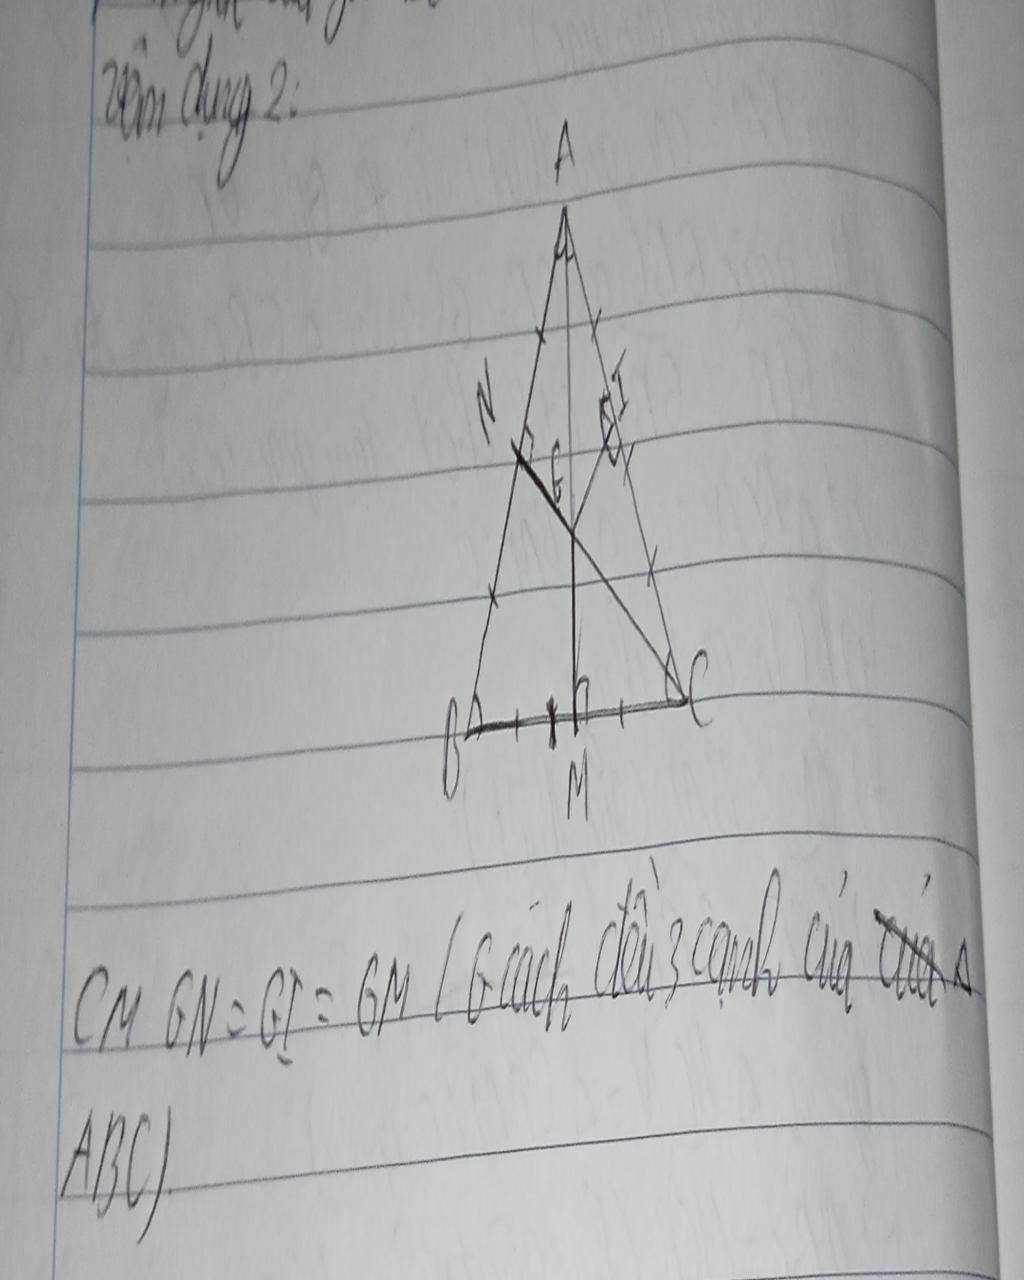 vận dụng 2:
A
N
I
G
B
C
M
CM GN = GI = GM (G cách đều 3 cạnh của của Δ
ABC)